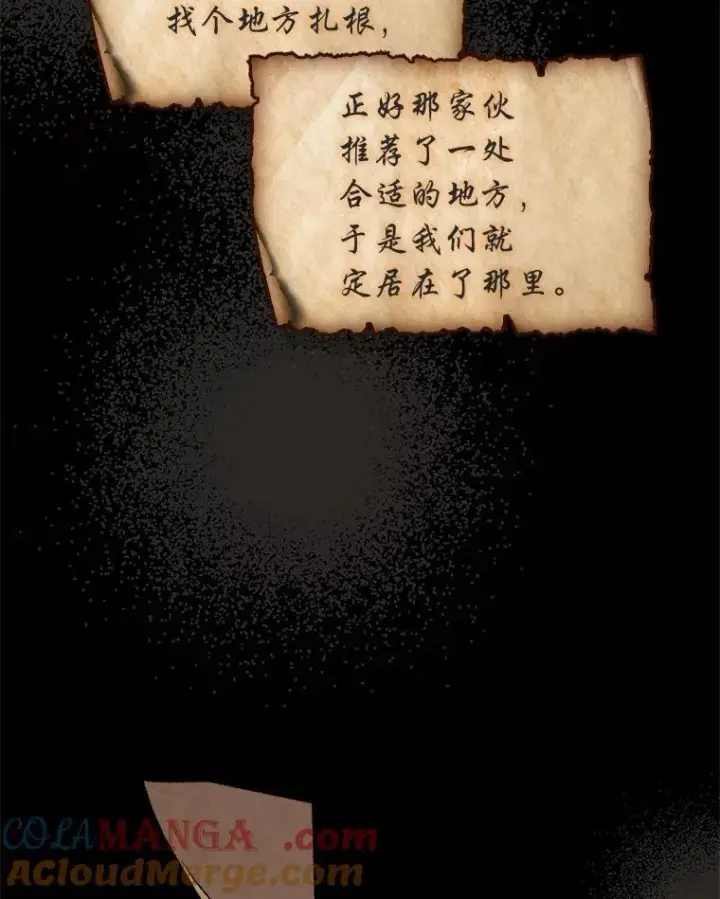 找个地方扎根，
正好那家伙
推荐了一处
合适的地方，
于是我们就
定居在了那里。
COLAMANGA .com
ACloudMerge.com